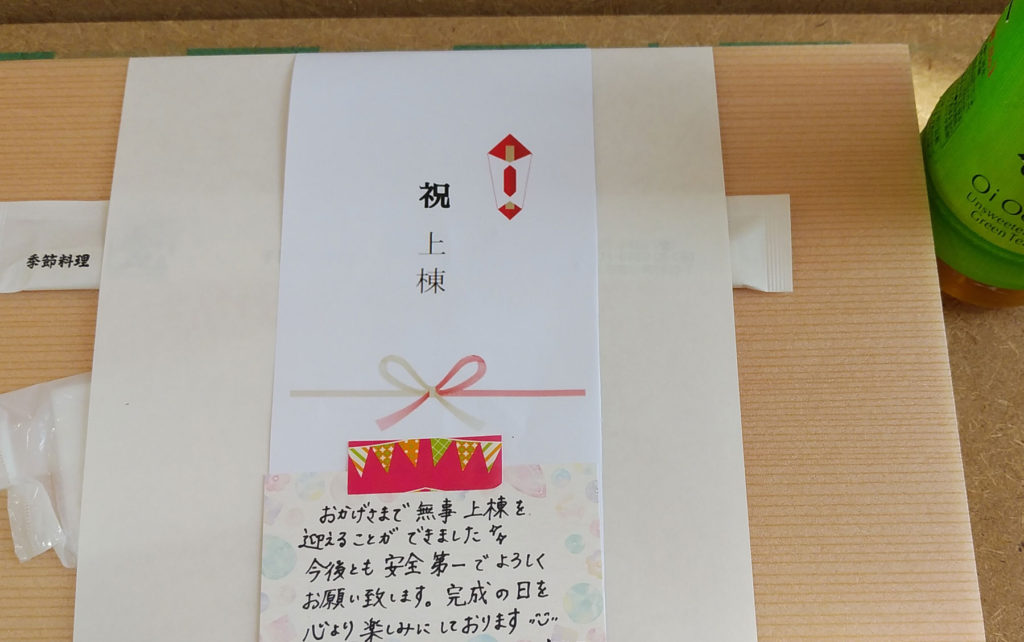 祝
上棟
季節料理
おかげさまで無事上棟を
迎えることができました
今後とも安全第一でよろしく
お願い致します。完成の日を
心より楽しみにしております
Oi O
Unsweete
Green Te